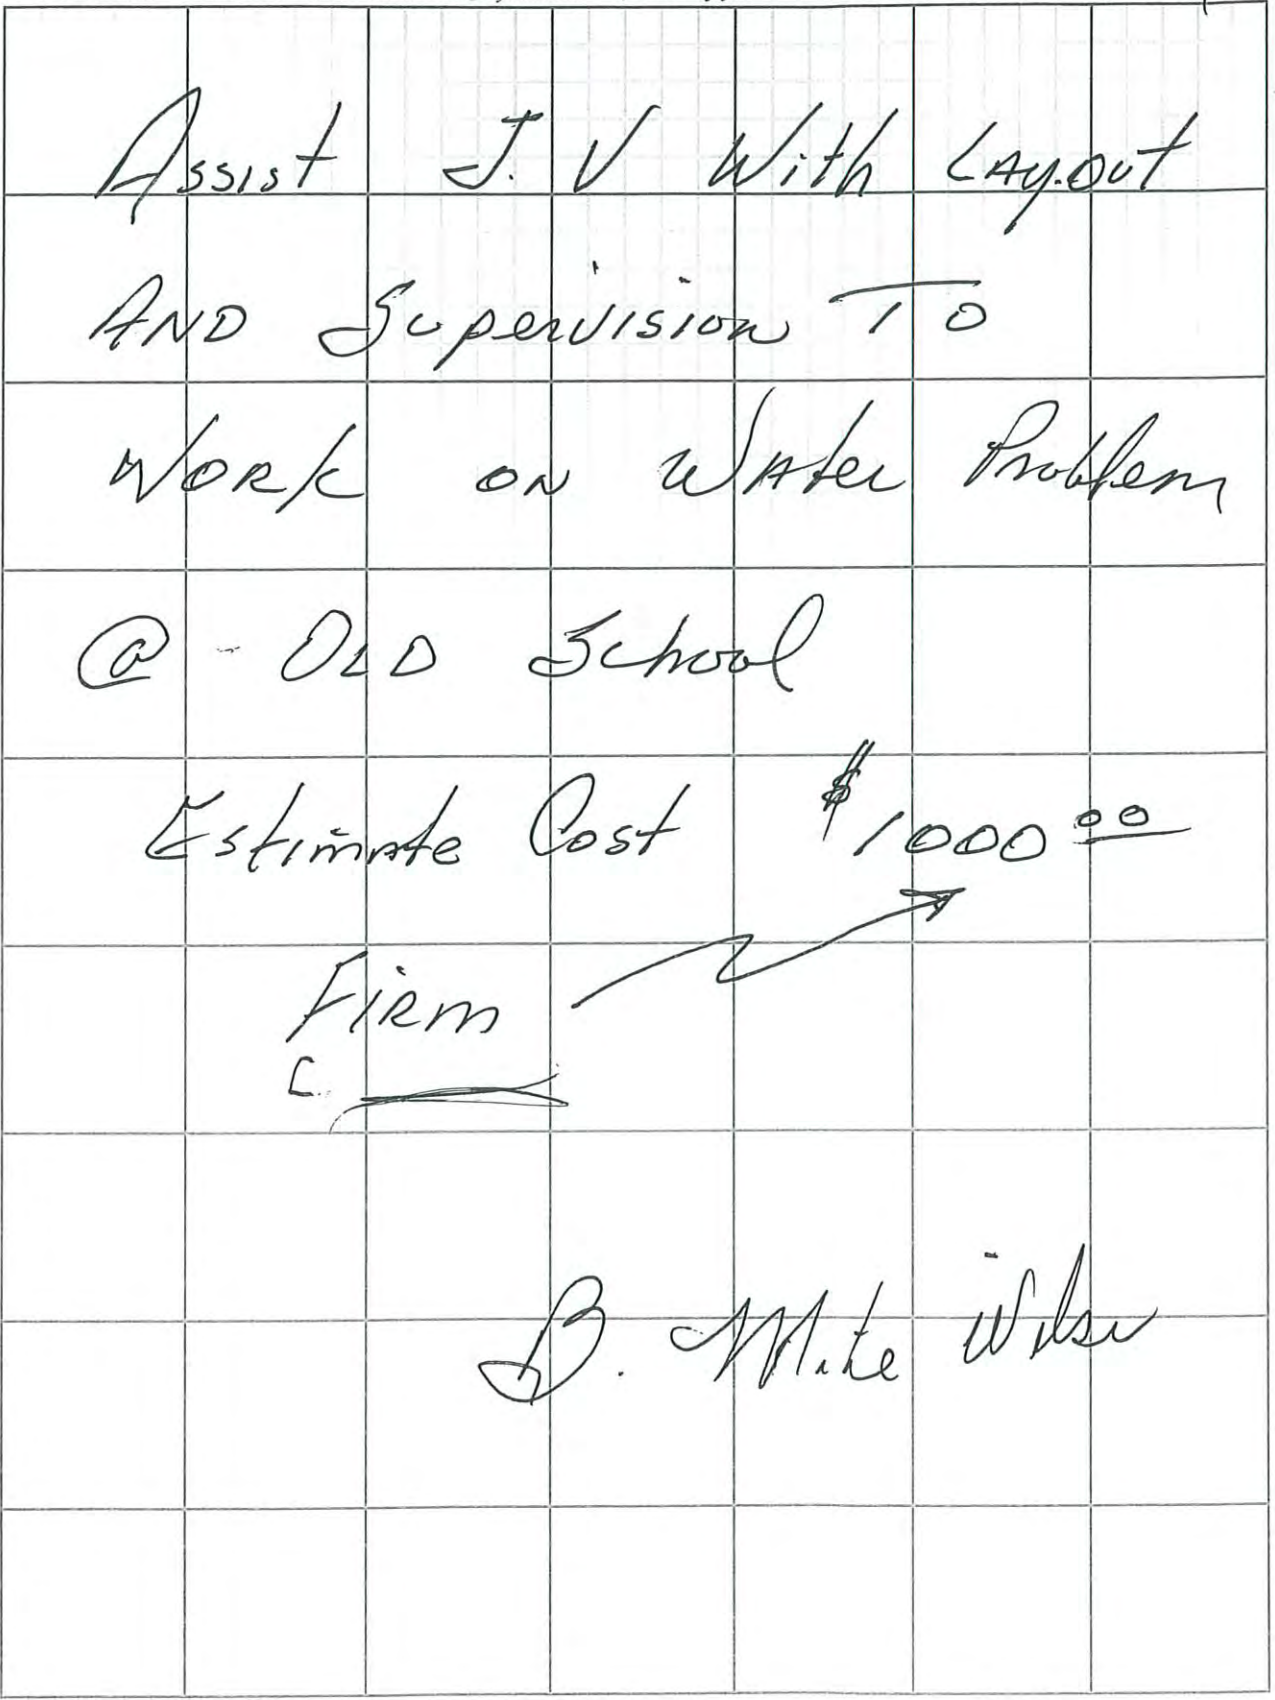 Assist J. V With Layout
AND Supervision TO
Work on Water Problem
@ - OLD School
Estimate Cost $1000.00
Firm
B. Mike Wilson